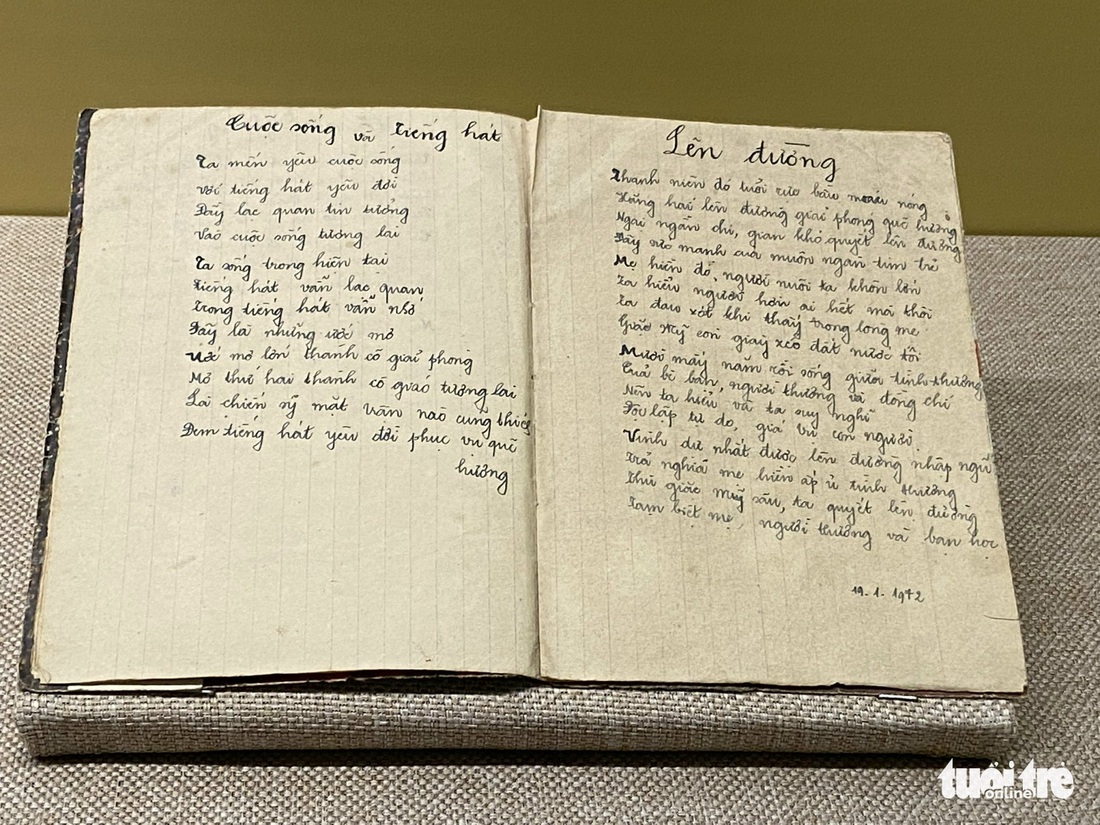 Cuộc sống và tiếng hát
Ta mến yêu cuộc sống
Với tiếng hát yêu đời
Đầy lạc quan tin tưởng
Vào cuộc sống tương lai
Ta sống trong hiện tại
Tiếng hát vẫn lạc quan
Trong tiếng hát vẫn nhớ
Đấy là những ước mơ
Ước mơ lớn thành cô giải phóng
Mơ thứ hai thành cô giáo tương lai
Là chiến sỹ mặt trận nào cũng thích
Đem tiếng hát yêu đời phục vụ quê
hương
Lên đường
Thanh niên đó tuổi rực bầu máu nóng
Hăng hái lên đường giải phóng quê hương
Ngại ngần chi, gian khó quyết lên đường
Đầy sức mạnh của muôn ngàn tim trẻ
Mẹ hiền đó, người nuôi ta khôn lớn
Ta hiểu người hơn ai hết mà thôi
Ta đau xót khi thấy trong lòng mẹ
Giặc Mỹ còn giày xéo đất nước tôi
Mười mấy năm rồi sống giữa tình thương
Của bè bạn, người thương và đồng chí
Nên ta hiểu và ta suy nghĩ
Độc lập tự do, giá trị con người
Vinh dự nhất được lên đường nhập ngũ
Trả nghĩa mẹ hiền ấp ủ tình thương
Thù giặc Mỹ sâu, ta quyết lên đường
Tạm biệt mẹ, người thương và bạn học
19-1-1972
tuổi trẻ
online